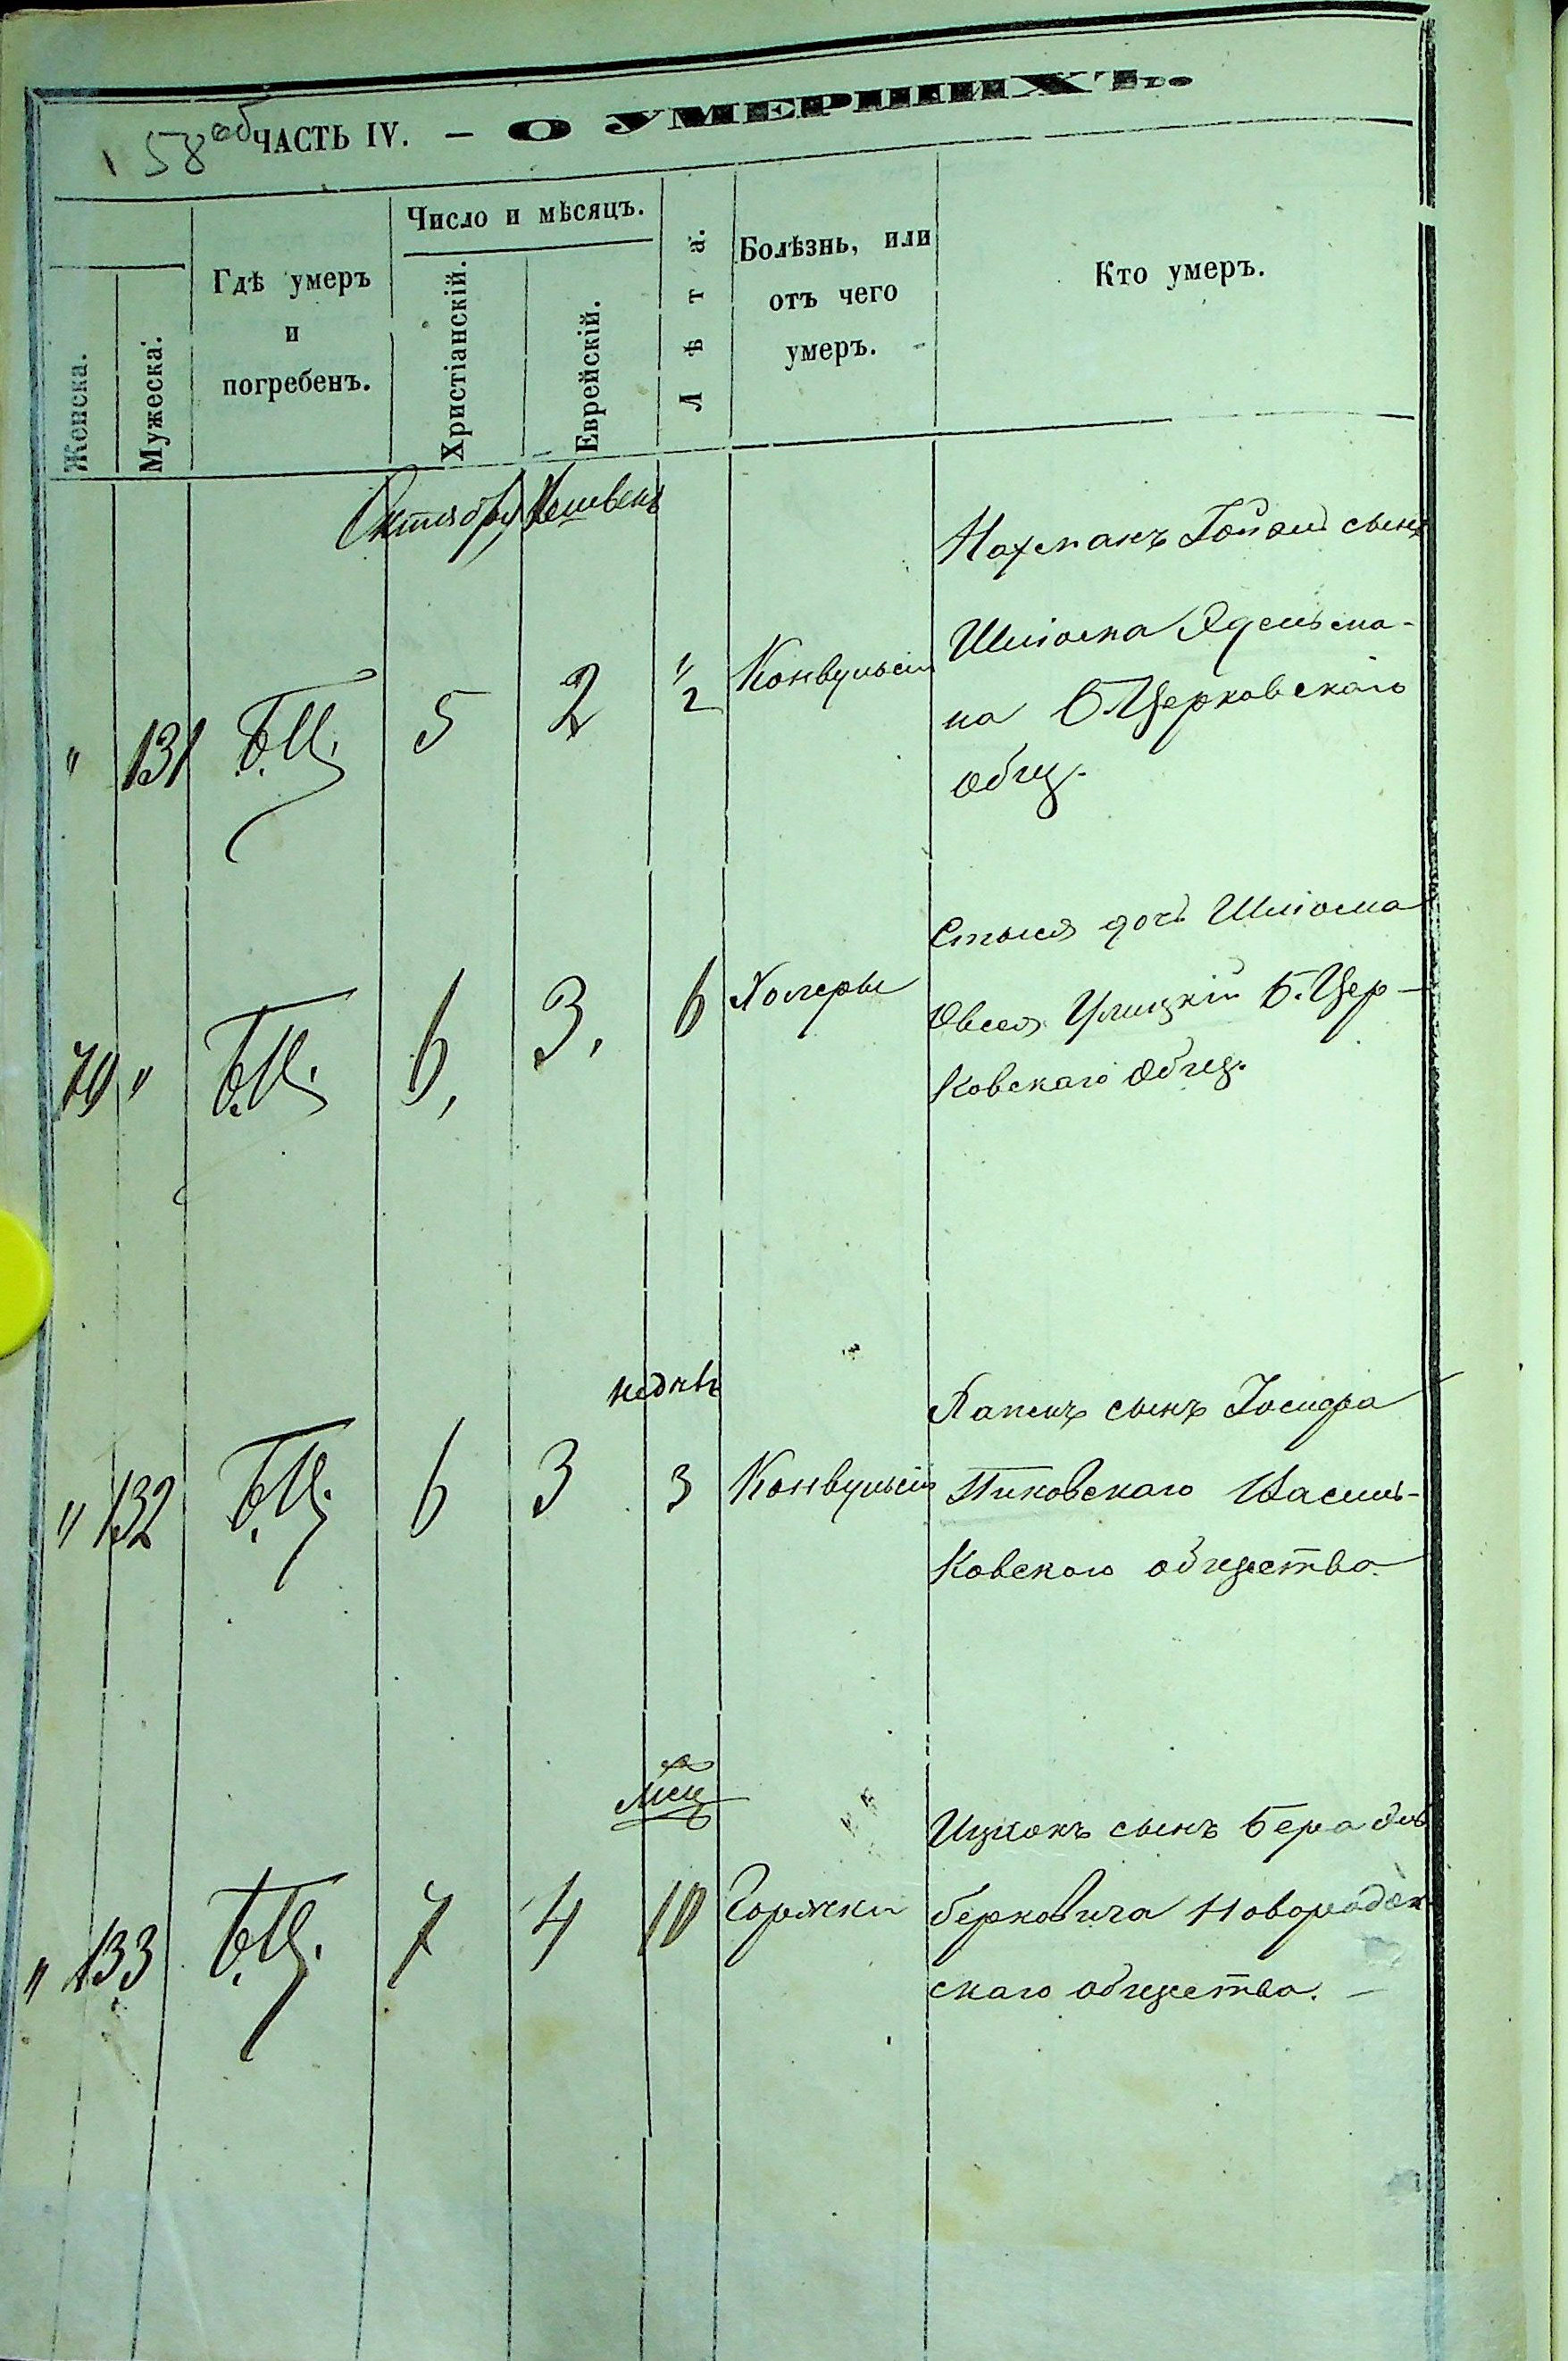 158об
ЧАСТЬ IV. — О УМЕРШИХЪ.
Женска.
Мужеска.
Гдѣ умеръ
и
погребенъ.
Число и мѣсяцъ.
Христіанскій.
Еврейскій.
Лѣта.
Болѣзнь, или
отъ чего
умеръ.
Кто умеръ.
Октябрь Хешвень
" 131 Б.Ц. 5 2 " 2 Конвульсіи
Нахманъ сынъ
Шліома Эдельма-
на Б.Церковскаго
общ.
70 " Б.Ц. 6, 3, 6 Холеры
дочь Шліома
Овсея Улицкій Б.Цер-
ковскаго общ.
недѣль
" 132 Б.Ц. 6 3 3 Конвульсіи
сынъ Іосифа
Пиковскаго Василь-
ковскаго общества
мсц
" 133 Б.Ц. 7 4 10 Горячки
Ицкокъ сынъ Бера
берковича
скаго общества. —